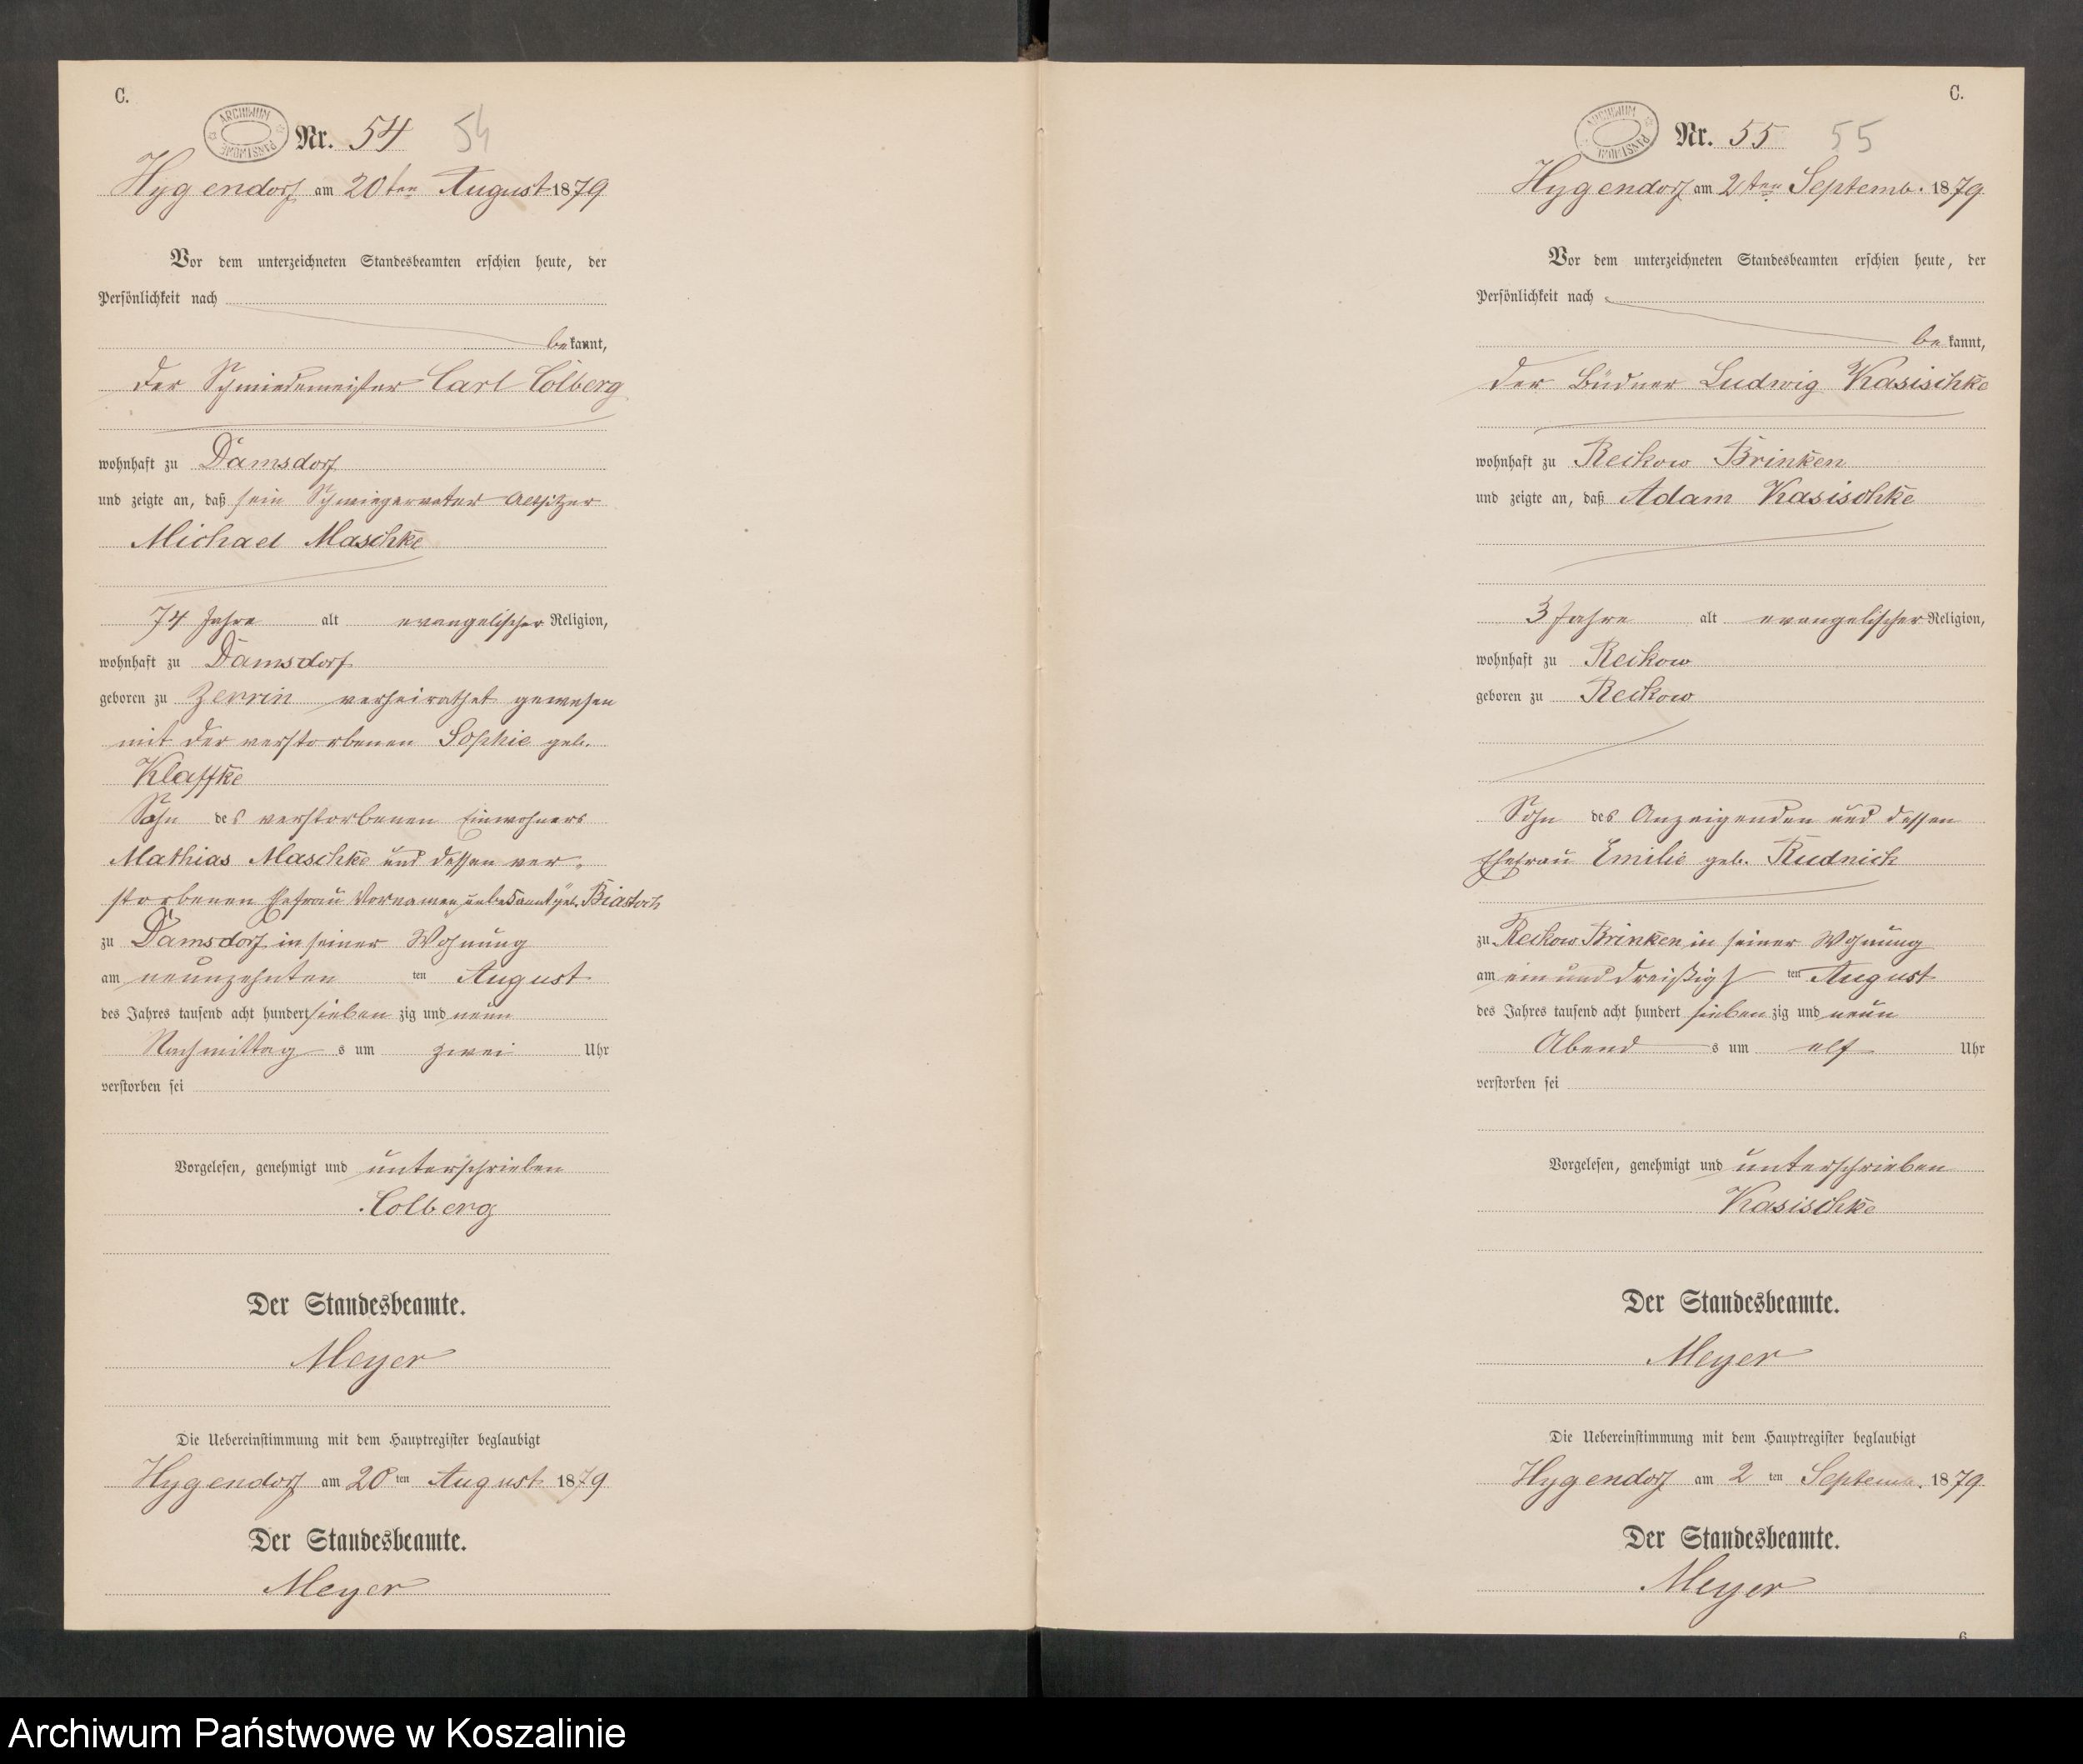 C.
ARCHIWUM PAŃSTWOWE
Nr. 54 54
Hygendorf am 20ten August 1879
Vor dem unterzeichneten Standesbeamten erschien heute, der
Persönlichkeit nach
bekannt,
der Schmiedemeister Carl Colberg
wohnhaft zu Damsdorf
und zeigte an, daß sein Schwiegervater Altsitzer
Michael Maschke
74 Jahre alt evangelischer Religion,
wohnhaft zu Damsdorf
geboren zu Zerrin verheirathet gewesen
mit der verstorbenen Sophie geb.
Klaffke
Sohn des verstorbenen Einwohners
Mathias Maschke und dessen ver-
storbenen Ehefrau Vornamen unbekannt geb.
zu Damsdorf in seiner Wohnung
am neunzehnten ten August
des Jahres tausend acht hundert sieben zig und neun
Nachmittag s um zwei Uhr
verstorben sei
Vorgelesen, genehmigt und unterschrieben
Colberg
Der Standesbeamte.
Meyer
Die Uebereinstimmung mit dem Hauptregister beglaubigt
Hygendorf am 20 ten August 1879
Der Standesbeamte.
Meyer
C.
ARCHIWUM PAŃSTWOWE
Nr. 55 55
Hygendorf am 2ten Septemb. 1879
Vor dem unterzeichneten Standesbeamten erschien heute, der
Persönlichkeit nach
be kannt,
der Büdner Ludwig Kasischke
wohnhaft zu Reckow Brinken
und zeigte an, daß Adam Kasischke
3 Jahre alt evangelischer Religion,
wohnhaft zu Reckow
geboren zu Reckow
Sohn des Anzeigenden und dessen
Ehefrau Emilie geb. Rudnick
zu Reckow Brinken in seiner Wohnung
am einunddreißigs ten August
des Jahres tausend acht hundert sieben zig und neun
Abend s um elf Uhr
verstorben sei
Vorgelesen, genehmigt und unterschrieben
Kasischke
Der Standesbeamte.
Meyer
Die Uebereinstimmung mit dem Hauptregister beglaubigt
Hygendorf am 2 ten Septemb. 1879
Der Standesbeamte.
Meyer
Archiwum Państwowe w Koszalinie